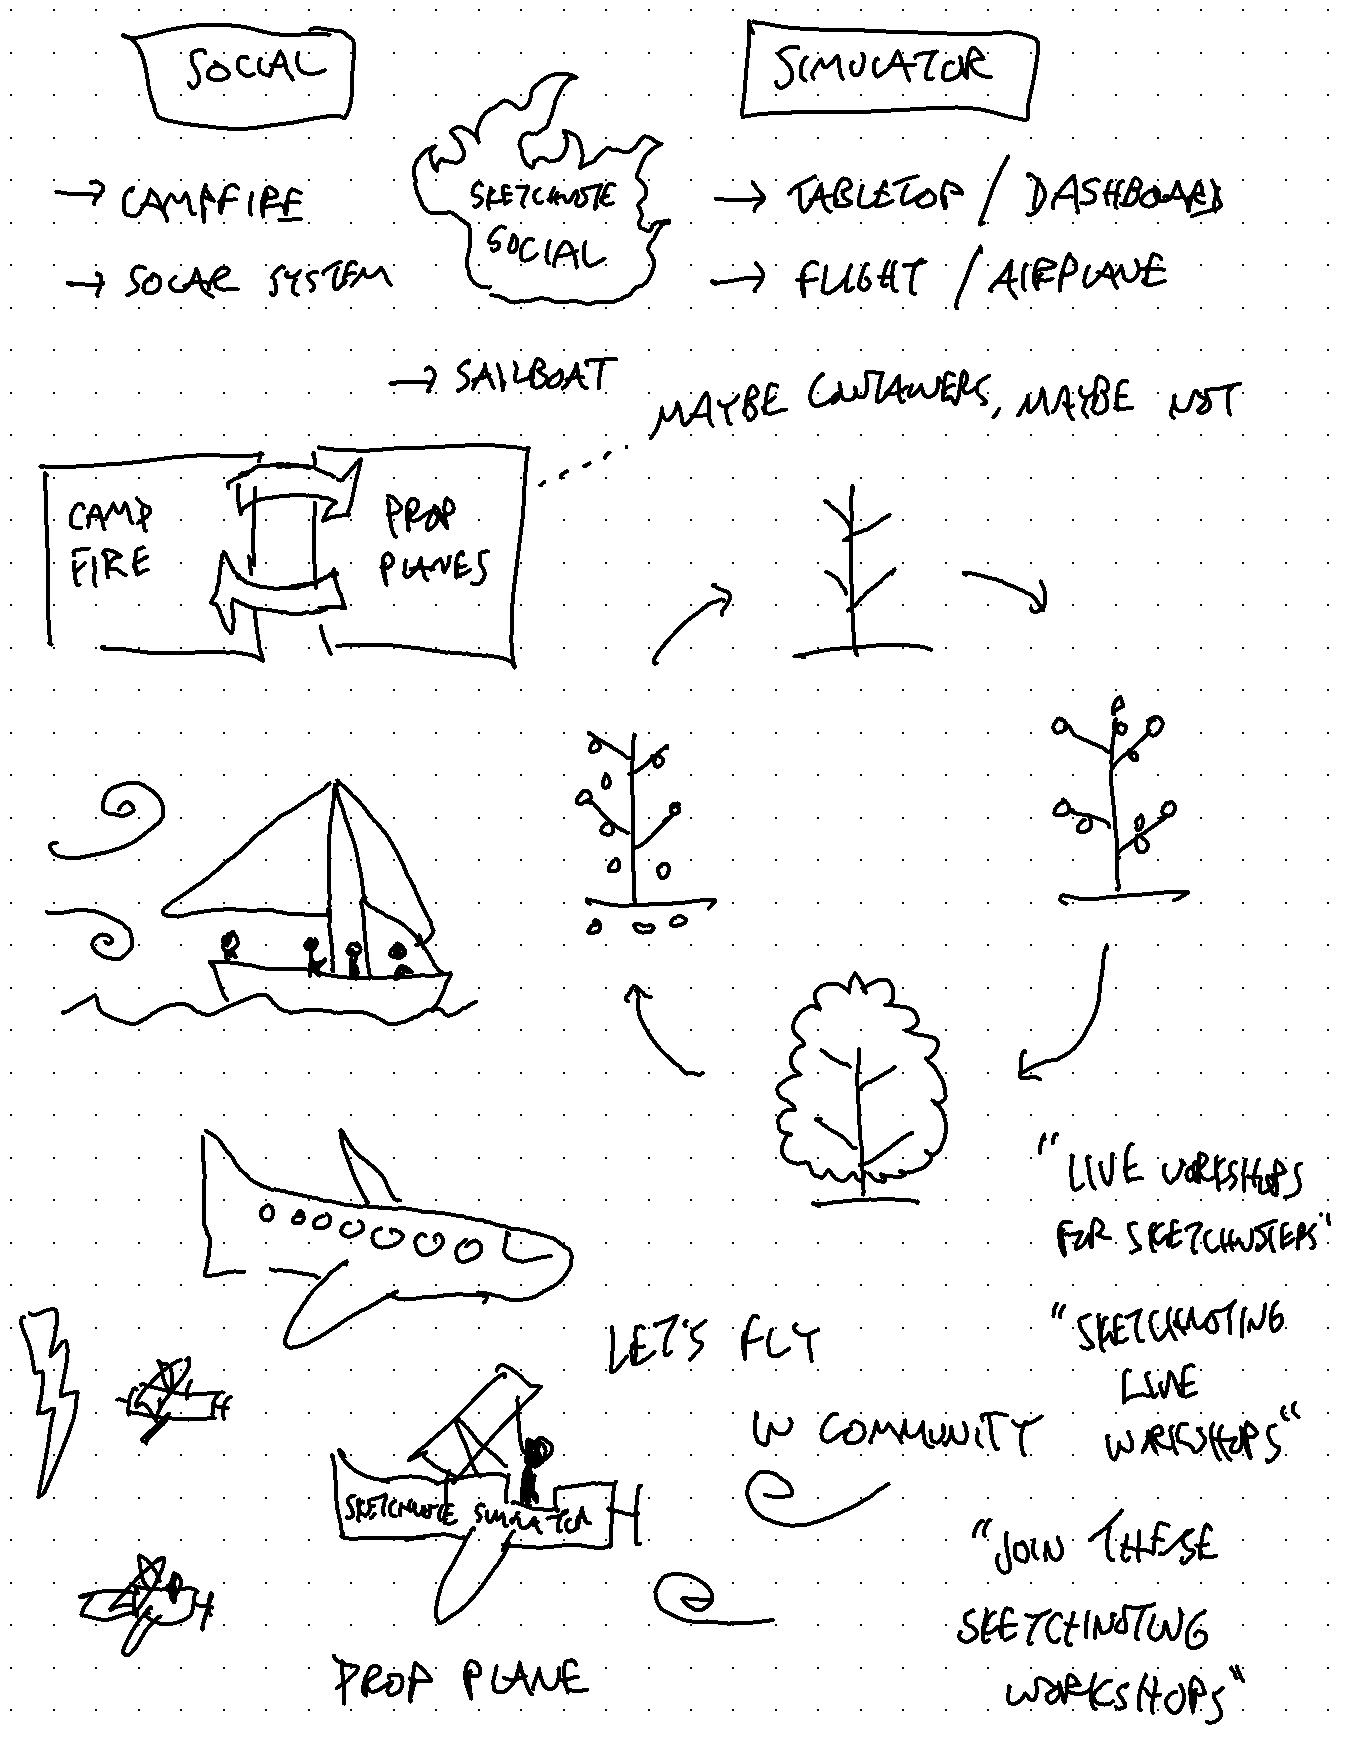 SOCIAL
SIMULATOR
→ CAMPFIRE
SKETCHNOTE
SOCIAL
→ TABLETOP / DASHBOARD
→ SOLAR SYSTEM
→ FLIGHT / AIRPLANE
→ SAILBOAT
MAYBE CONTAINERS, MAYBE NOT
CAMP
FIRE
PROP
PLANES
"LIVE WORKSHOPS
FOR SKETCHNOTERS"
"SKETCHNOTING
LIVE
WORKSHOPS"
LET'S FLY
IN COMMUNITY
SKETCHNOTE SIMULATOR
"JOIN THESE
SKETCHNOTING
WORKSHOPS"
PROP PLANE